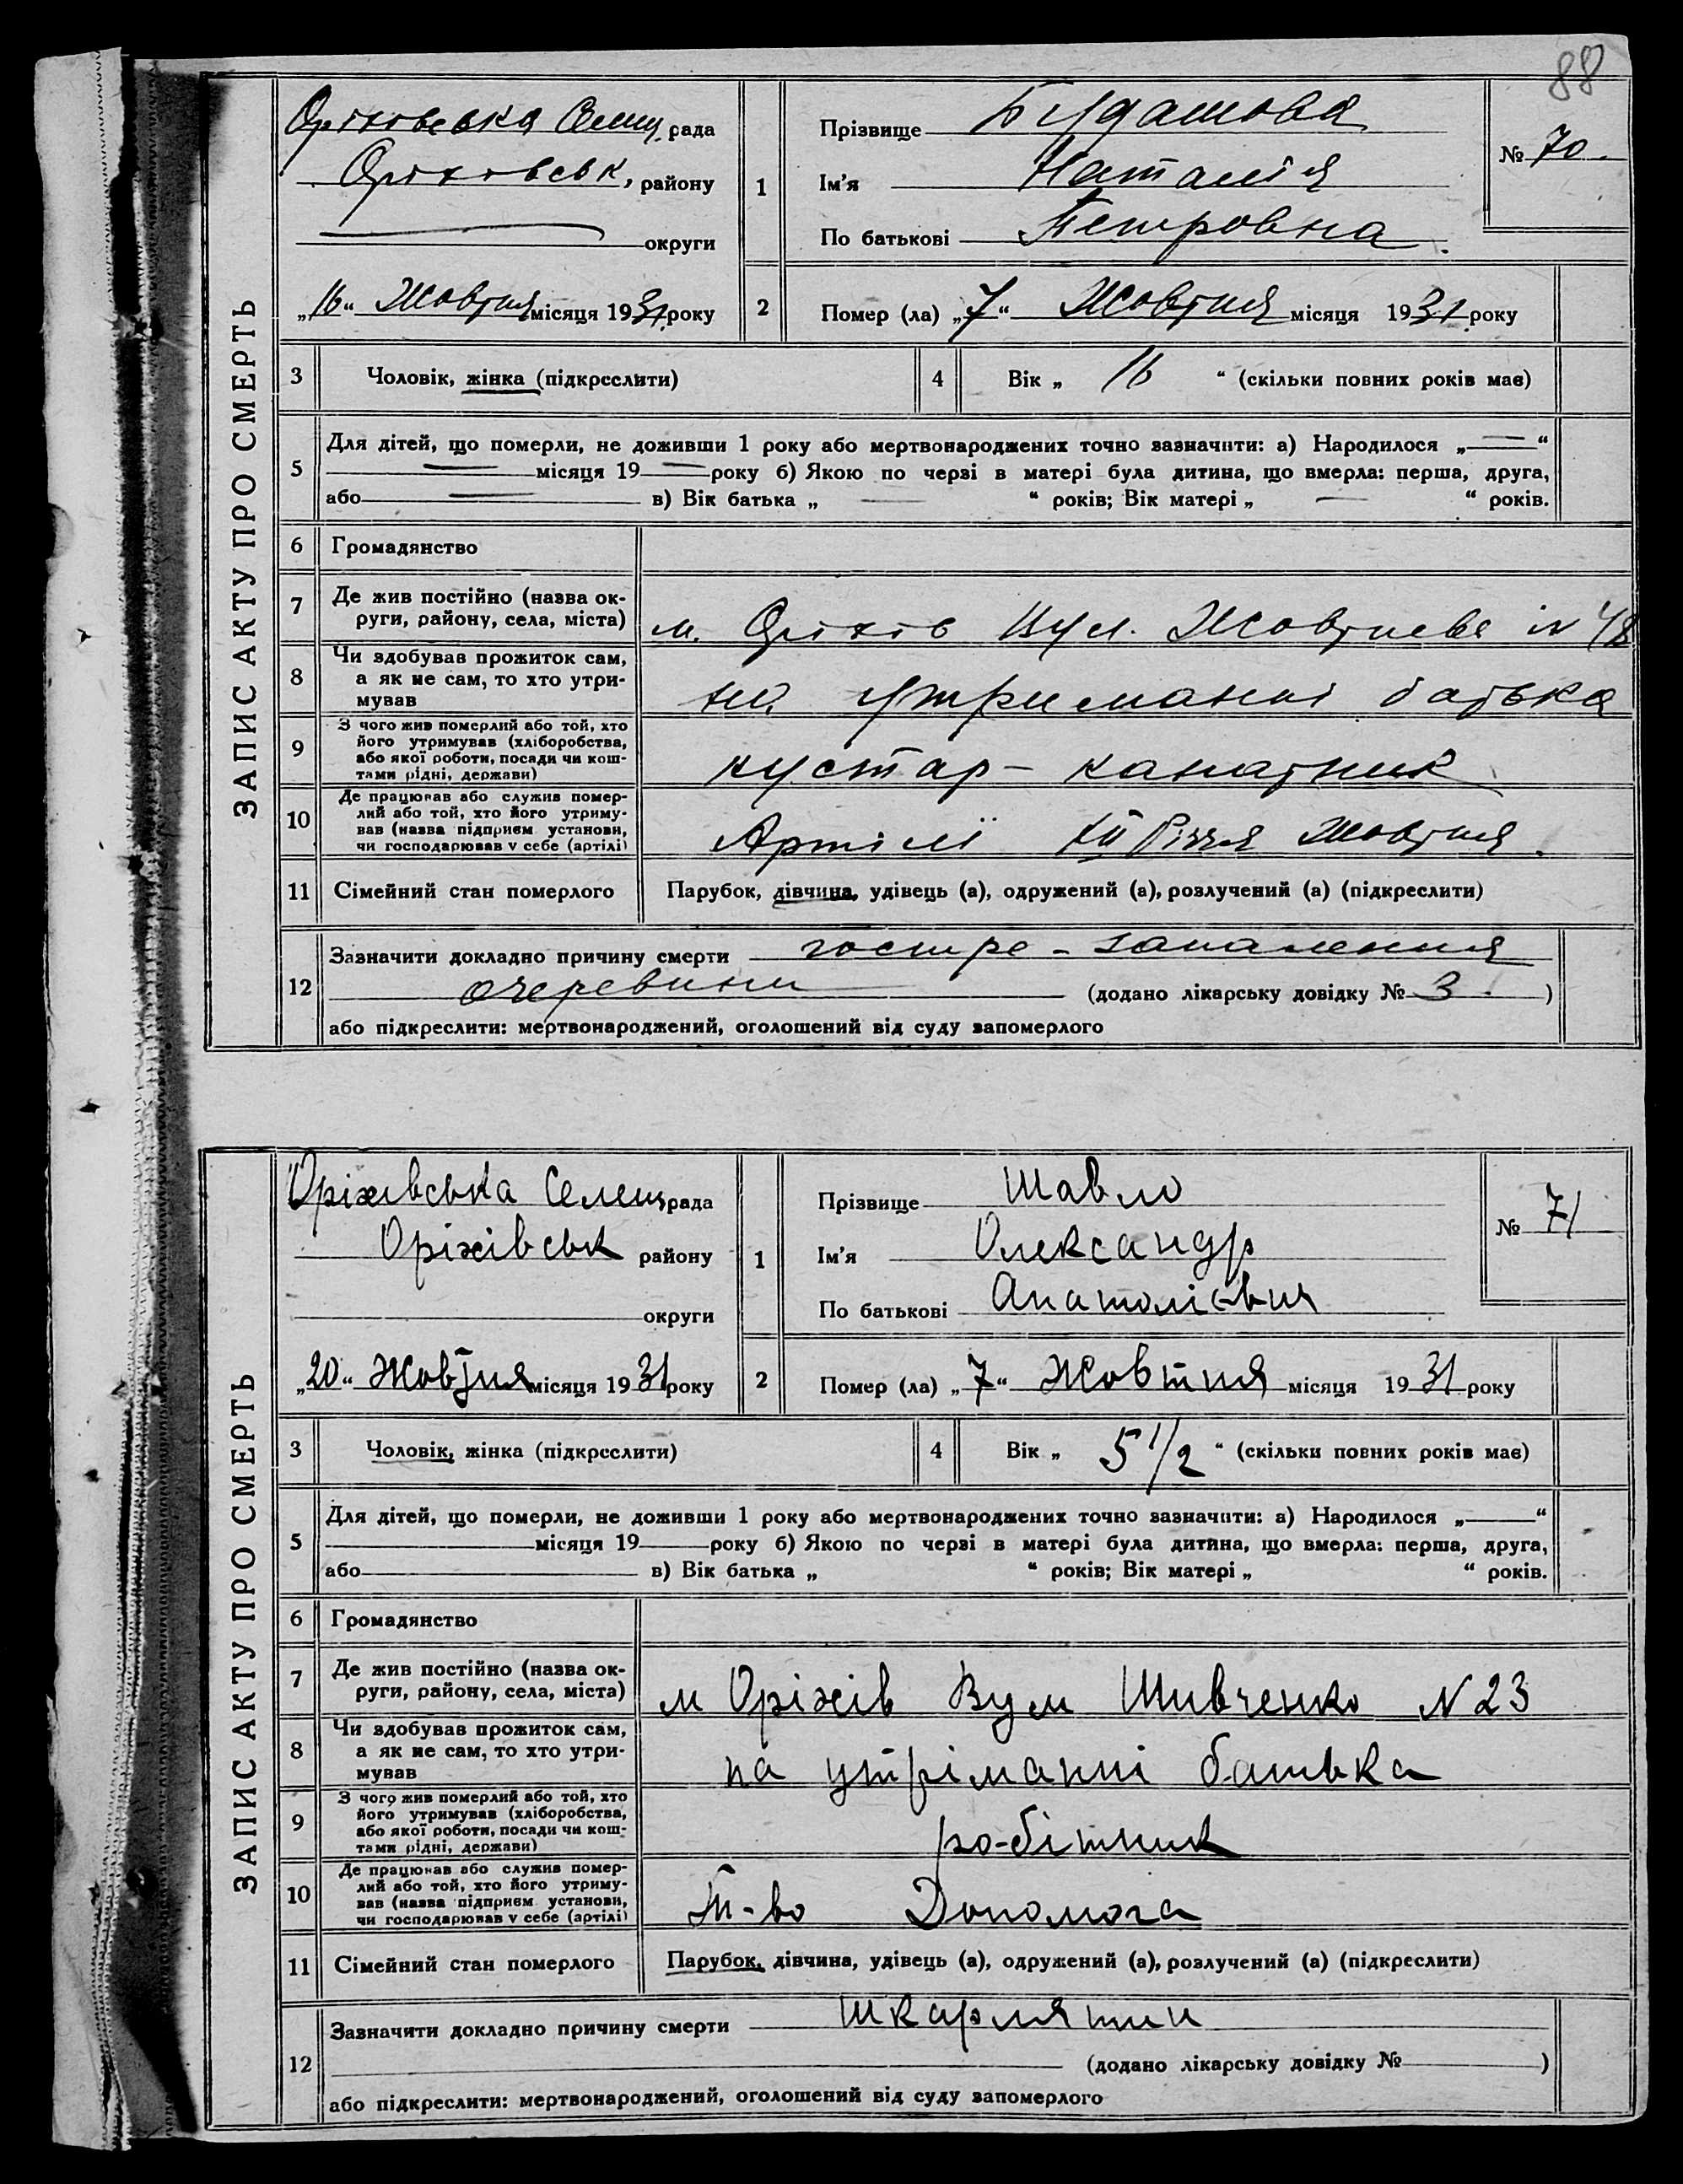 88
ЗАПИС АКТУ ПРО СМЕРТЬ
Оріхівська Селищ. рада
Оріхівськ, району
округи
„16“ Жовтня місяця 1931 року
1
Прізвище Будашова
Ім'я Наталія
По батькові Петровна.
№ 70.
2
Помер (ла) „7“ Жовтня місяця 1931 року
3 Чоловік, жінка (підкреслити)
4 Вік „ 16 “ (скільки повних років має)
5 Для дітей, що померли, не доживши 1 року або мертвонароджених точно зазначити: а) Народилося „—“
— місяця 19— року б) Якою по черзі в матері була дитина, що вмерла: перша, друга,
або — в) Вік батька „ — “ років; Вік матері „ — “ років.
6 Громадянство
7 Де жив постійно (назва ок-
руги, району, села, міста) м. Оріхів Вул. Жовтнева № 48
8 Чи здобував прожиток сам,
а як не сам, то хто утри-
мував на утриманні батька
9 З чого жив померлий або той, хто
його утримував (хліборобства,
або якої роботи, посади чи кош-
тами рідні, держави) кустар - канатник
10 Де працював або служив помер-
лий або той, хто його утриму-
вав (назва підприєм установи,
чи господарював у себе (артілі) Артілі XII Річчя Жовтня.
11 Сімейний стан померлого Парубок, дівчина, удівець (а), одружений (а), розлучений (а) (підкреслити)
12 Зазначити докладно причину смерти гостре - запалення
очеревини (додано лікарську довідку № 3. )
або підкреслити: мертвонароджений, оголошений від суду запомерлого
ЗАПИС АКТУ ПРО СМЕРТЬ
Оріхівська Селищ рада
Оріхівськ району
округи
„20“ Жовтня місяця 1931 року
1
Прізвище Шавло
Ім'я Олександр
По батькові Анатолієвич
№ 71
2
Помер (ла) „7“ Жовтня місяця 1931 року
3 Чоловік, жінка (підкреслити)
4 Вік „ 5 1/2 “ (скільки повних років має)
5 Для дітей, що померли, не доживши 1 року або мертвонароджених точно зазначити: а) Народилося „ “
місяця 19 року б) Якою по черзі в матері була дитина, що вмерла: перша, друга,
або в) Вік батька „ “ років; Вік матері „ “ років.
6 Громадянство
7 Де жив постійно (назва ок-
руги, району, села, міста) м Оріхів Вул Шивченко N 23
8 Чи здобував прожиток сам,
а як не сам, то хто утри-
мував на утріманні батька
9 З чого жив померлий або той, хто
його утримував (хліборобства,
або якої роботи, посади чи кош-
тами рідні, держави) ро-бітник
10 Де працював або служив помер-
лий або той, хто його утриму-
вав (назва підприєм установи,
чи господарював у себе (артілі) Т-во Допомога
11 Сімейний стан померлого Парубок, дівчина, удівець (а), одружений (а), розлучений (а) (підкреслити)
12 Зазначити докладно причину смерти шкарлятин
(додано лікарську довідку № )
або підкреслити: мертвонароджений, оголошений від суду запомерлого